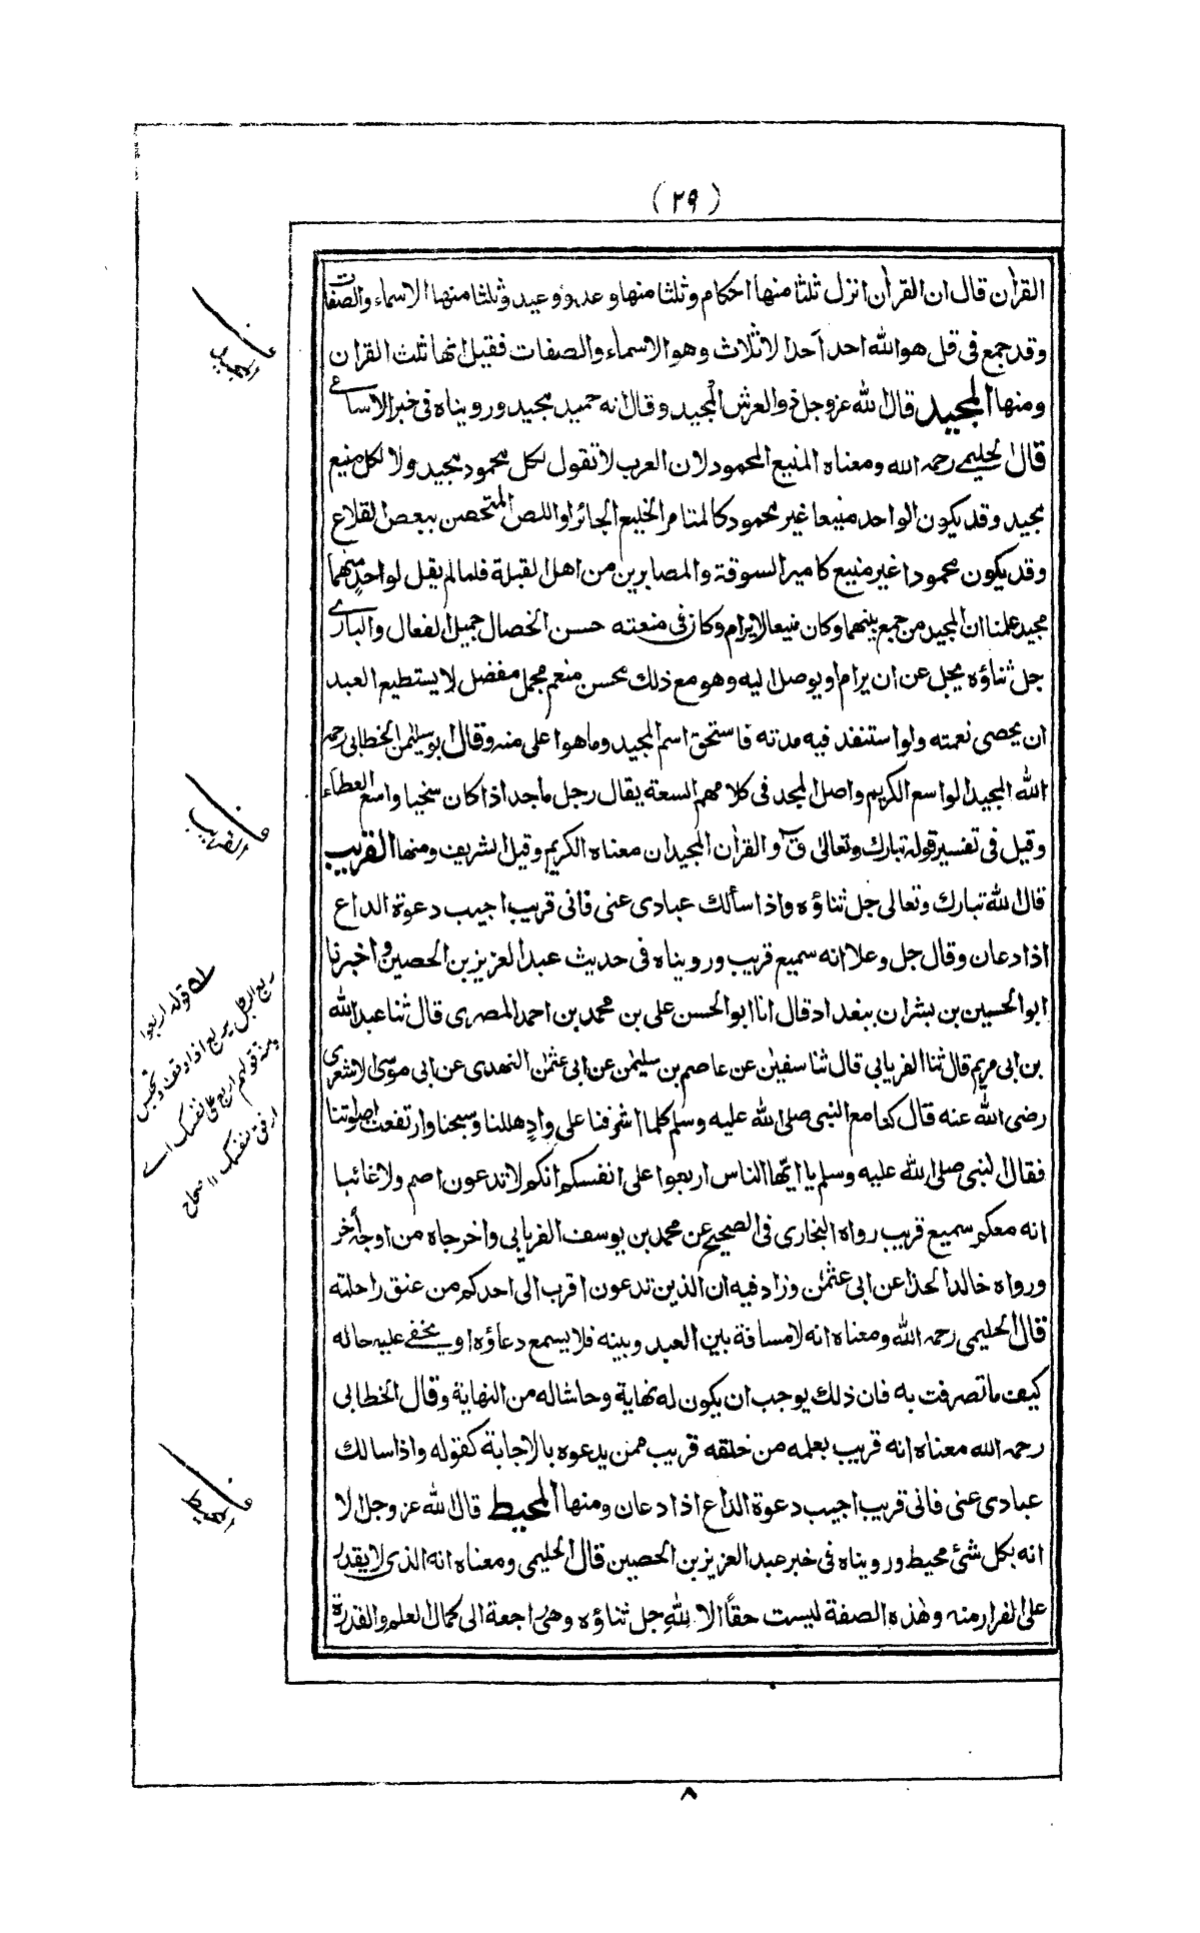 (٢٩)
القرأن قال ان القرأن انزل ثلثا منها احكام وثلثا منها وعد ووعيد وثلثا منها الاسماء والصفات
وقد جمع فى قل هو الله احد أحد الاثلاث وهو الاسماء والصفات فقيل انها ثلث القران
ومنها المجيد قال الله عز وجل ذو العرش المجيد وقال انه حميد مجيد ورويناه فى خبر الاسامى
قال الحليمى رحمه الله ومعناه المنيع المحمود لان العرب لا تقول لكل محمود مجيد ولا لكل منيع
مجيد وقد يكون الواحد منيعا غير محمود كالمتامر الخليع الجائر او اللص المتحصن ببعض القلاع
وقد يكون محمودا غير منيع كامير السوقة والمصابرين من اهل القبلة فلما لم يقل لواحد منهما
مجيد علمنا ان المجيد من جمع بينهما وكان منيعا لا يرام وكان فى منعته حسن الخصال جميل الفعال والبارى
جل ثناؤه يجل عن ان يرام او يوصل اليه وهو مع ذلك محسن منعم مجمل مفضل لا يستطيع العبد
ان يحصى نعمته ولو استنفد فيه مدته فاستحق اسم المجيد وما هو اعلى منه وقال ابو سليمن الخطابى رحمه
الله المجيد الواسع الكريم واصل المجد فى كلامهم السعة يقال رجل ماجد اذا كان سخيا واسع العطاء
وقيل فى تفسير قوله تبارك وتعالى قۤ والقرأن المجيد ان معناه الكريم وقيل الشريف ومنها القريب
قال الله تبارك وتعالى جل ثناؤه واذا سألك عبادى عنى فانى قريب اجيب دعوة الداع
اذا دعان وقال جل وعلا انه سميع قريب ورويناه فى حديث عبد العزيز بن الحصين واخبرنا
ابو الحسين بن بشران ببغداد قال انا ابو الحسن على بن محمد بن احمد المصرى قال ثنا عبد الله
بن ابى مريم قال ثنا الفريابى قال ثنا سفين عن عاصم بن سليمن عن ابى عثمن النهدى عن ابى موسى الاشعرى
رضى الله عنه قال كنا مع النبى صلى الله عليه وسلم كلما اشرفنا على وادٍ هللنا وسبحنا وارتفعت اصواتنا
فقال النبى صلى الله عليه وسلم يا ايها الناس اربعوا على انفسكم انكم لا تدعون اصم ولا غائبا
انه معكم سميع قريب رواه البخارى فى الصحيح عن محمد بن يوسف الفريابى واخرجاه من اوجه أخر
ورواه خالد الحذا عن ابى عثمن وزاد فيه ان الذين تدعون اقرب الى احدكم من عنق راحلته
قال الحليمى رحمه الله ومعناه انه لا مسافة بين العبد وبينه فلا يسمع دعاؤه او يخفى عليه حاله
كيف ما تصرفت به فان ذلك يوجب ان يكون له نهاية وحاشا له من النهاية وقال الخطابى
رحمه الله معناه انه قريب بعلمه من خلقه قريب ممن يدعوه بالاجابة كقوله واذا سالك
عبادى عنى فانى قريب اجيب دعوة الداع اذا دعان ومنها المحيط قال الله عز وجل الا
انه بكل شئ محيط ورويناه فى خبر عبد العزيز بن الحصين قال الحليمى ومعناه انه الذى لا يقدر
على الفرار منه وهذه الصفة ليست حقًا الا للهِ جل ثناؤه وهى راجعة الى كمال العلم والقدرة
المجيد
القريب
له قوله اربعوا
ربع الرجل يربع اذا وقف وتحبس
ومنه قولهم اربع على نفسك اے
ارفق بنفسك ١٢ صحاح
المحيط
٨